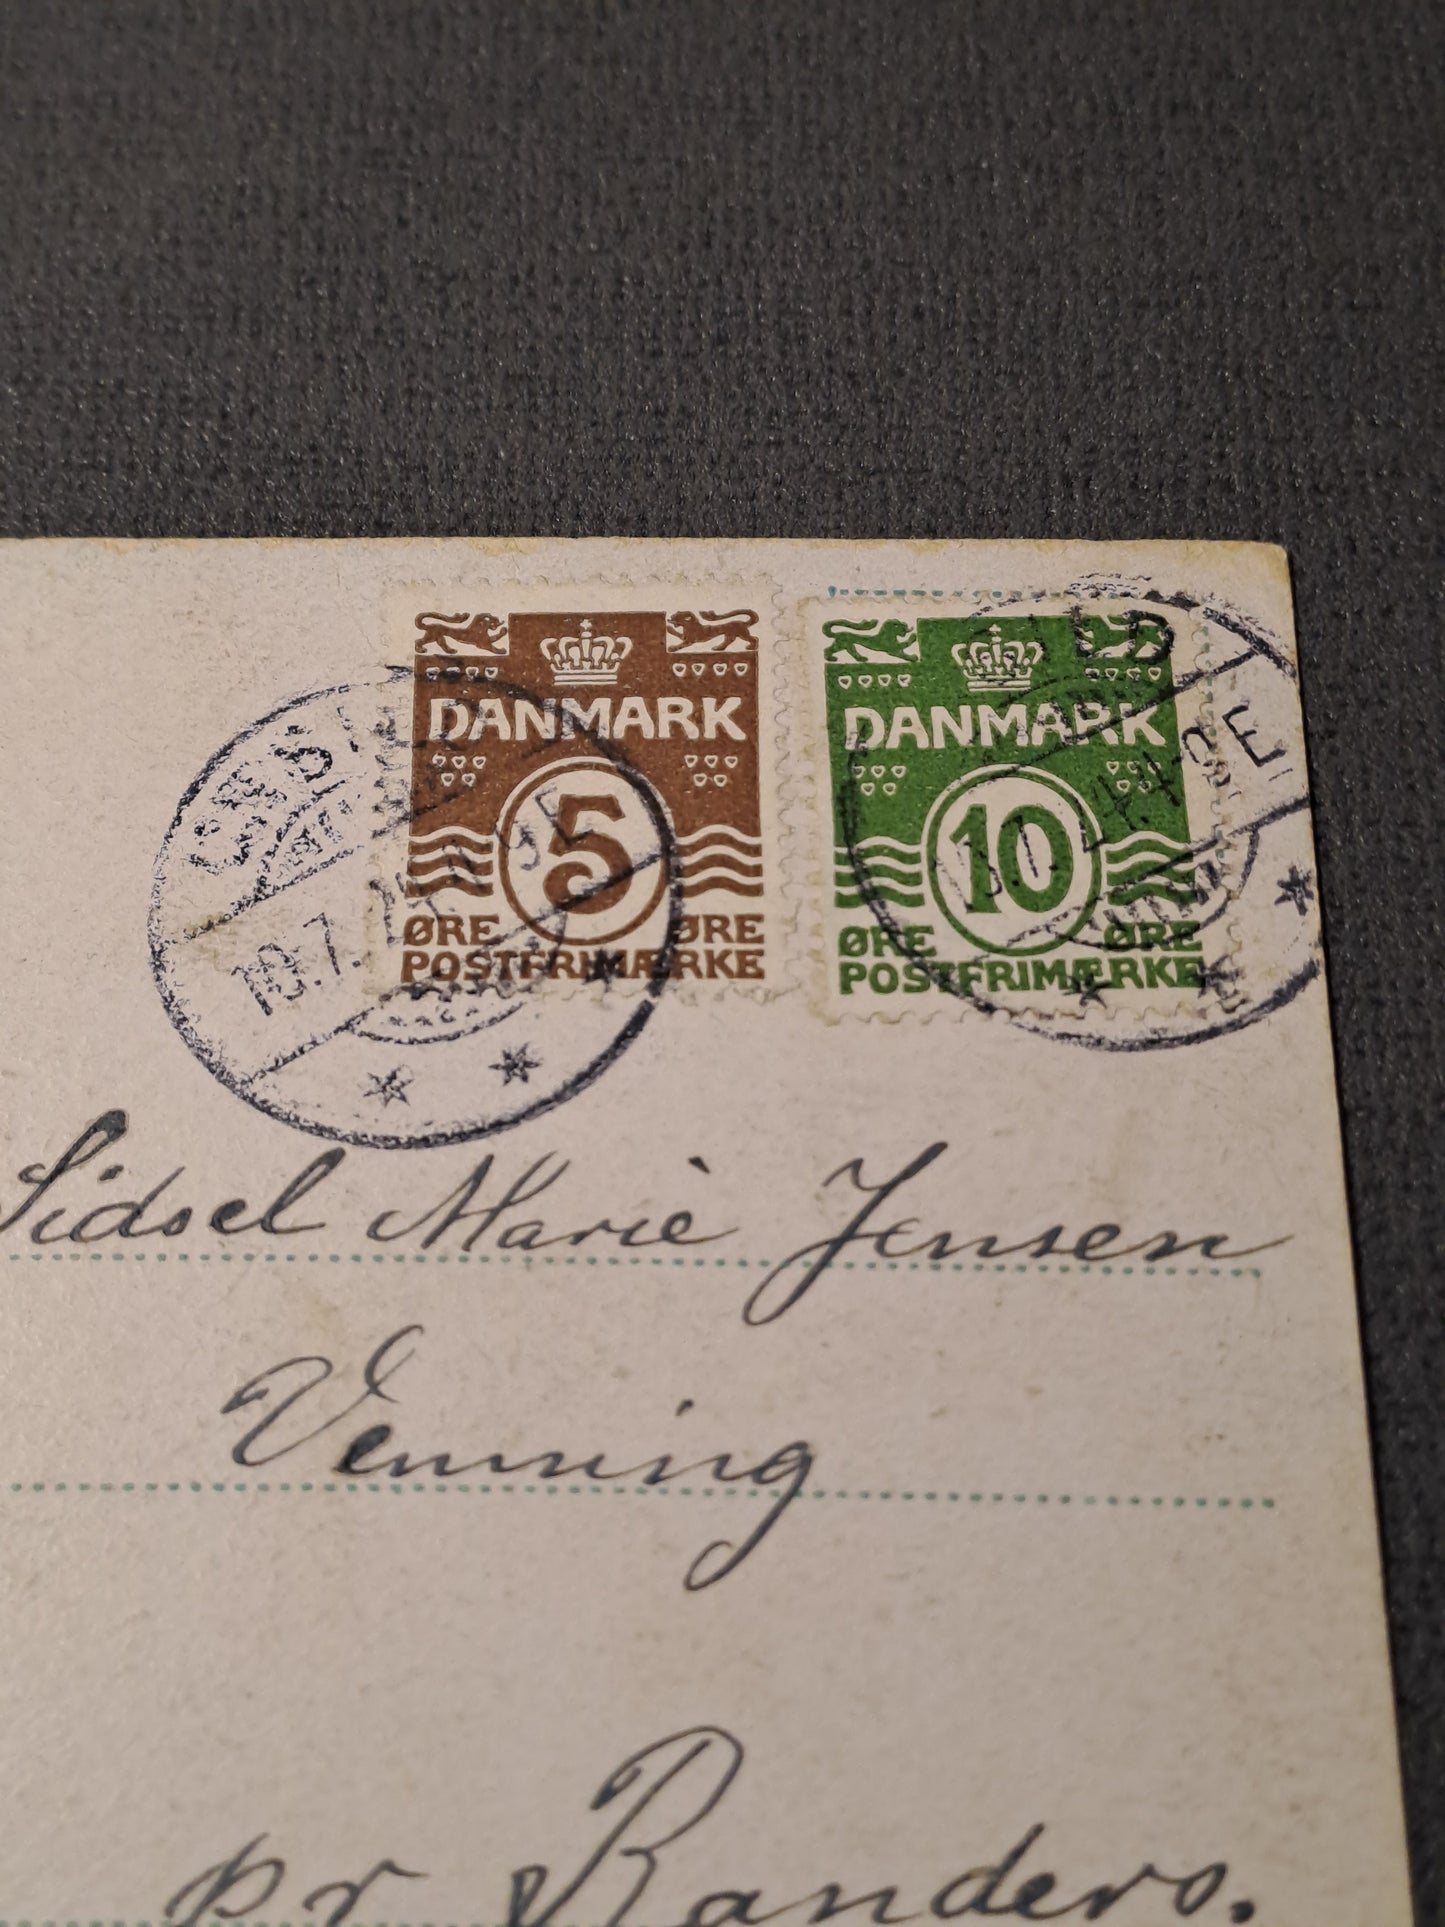 DANMARK
5
ØRE ØRE
POSTFRIMÆRKE
DANMARK
10
ØRE ØRE
POSTFRIMÆRKE
18.7.
Sidsel Marie Jensen
Venning
pr Randers.